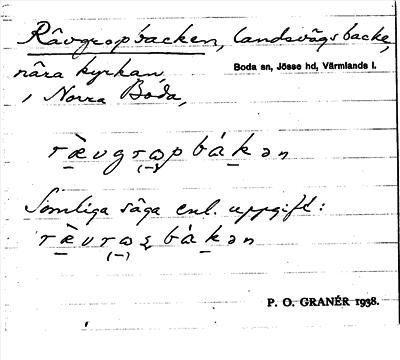 Rävgropbacken, landsvägsbacke,
nära kyrkan,
Boda sn, Jösse hd, Värmlands l.
i Norra Boda,
Somliga säga enl. uppgift:
P. O. GRANÉR 1938.